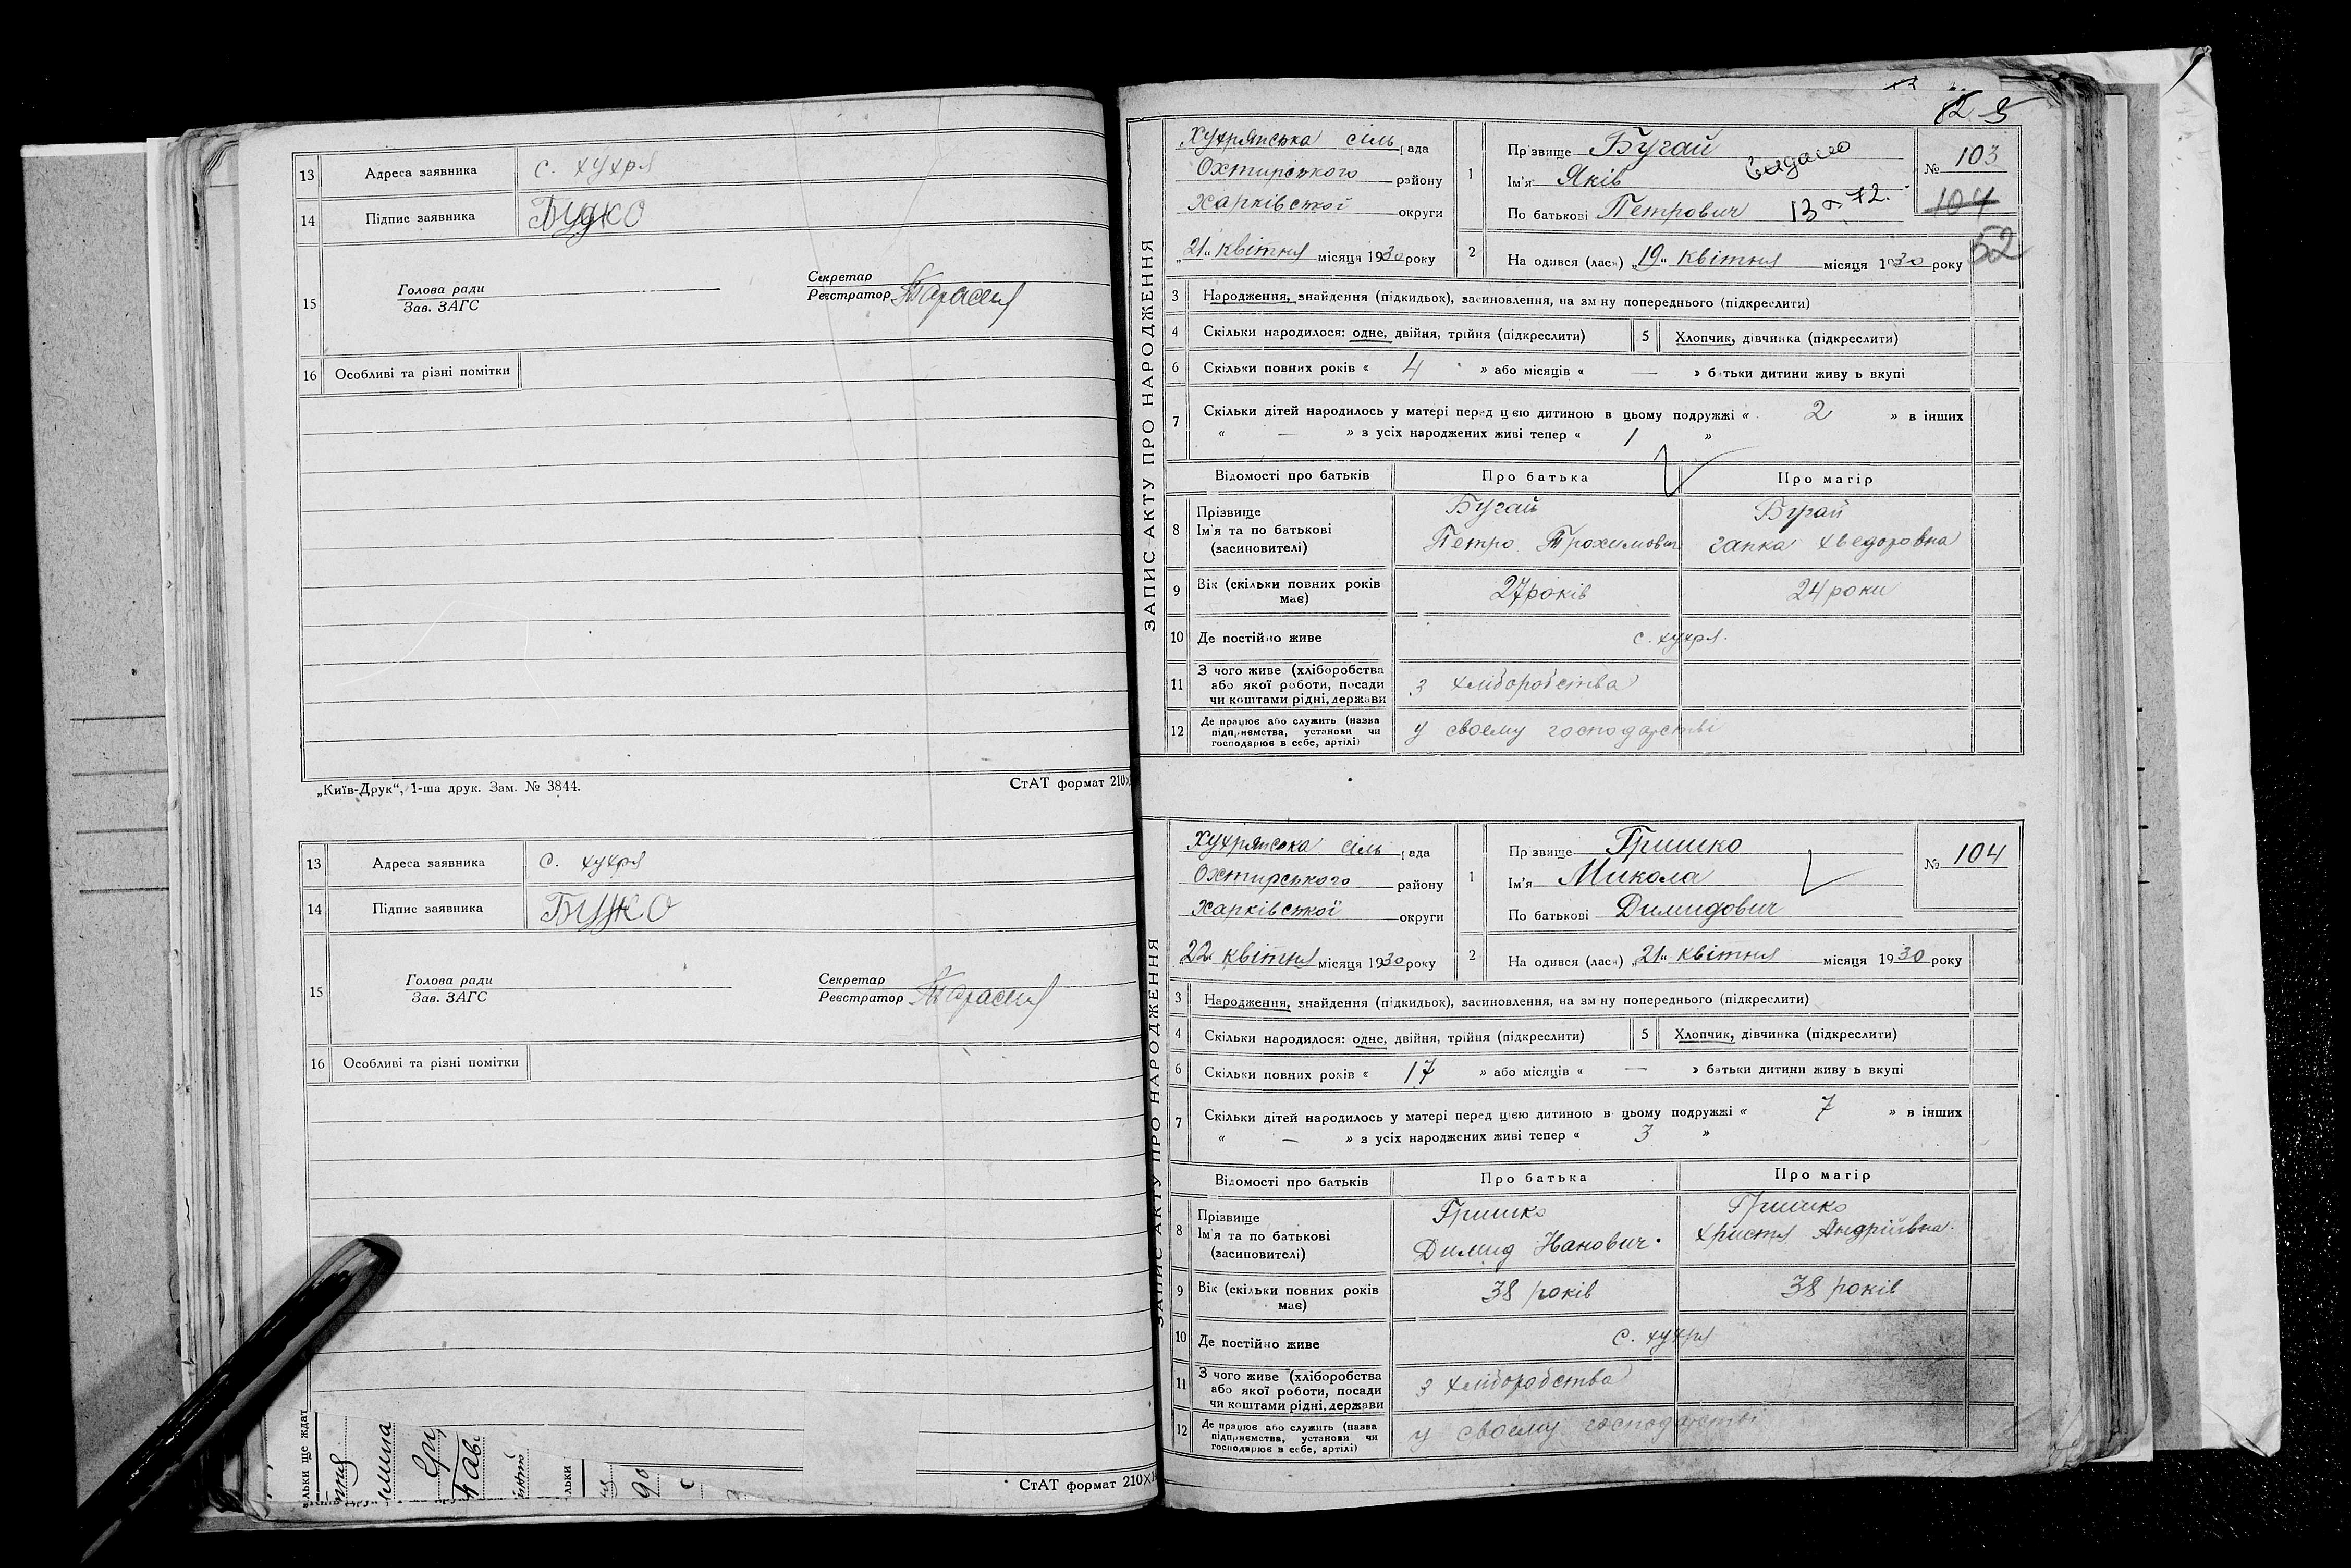 13 Адреса заявника с. хухря
14 Підпис заявника Будко
15 Голова ради
Зав. ЗАГС
Секретар
Реєстратор
16 Особливі та різні помітки
„Київ-Друк“, 1-ша друк. Зам. № 3844.
СтАТ формат 210х
13 Адреса заявника с. хухря
14 Підпис заявника
15 Голова ради
Зав. ЗАГС
Секретар
Реєстратор
16 Особливі та різні помітки
СтАТ формат 210х
ЗАПИС АКТУ ПРО НАРОДЖЕННЯ
Хухрянська сіль ада
Охтирського району
Харківської округи
„21“ квітня місяця 1930 року
1 Прзвище Бугай
Ім'я Яків
По батькові Петрович
Выдано
13 72.
№ 103
104
52
2 На одився (лась) „19“ квітня місяця 1930 року
3 Народження, знайдення (підкидьок), засиновлення, на зм ну попереднього (підкреслити)
4 Скільки народилося: одне, двійня, трійня (підкреслити) 5 Хлопчик, дівчинка (підкреслити)
6 Скільки повних років « 4 » або місяців « — » батьки дитини живу ь вкупі
7 Скільки дітей народилось у матері перед цією дитиною в цьому подружжі « 2 » в інших
« — » з усіх народжених живі тепер « 1 »
Відомості про батьків Про батька Про матір
8 Прізвище
Ім'я та по батькові
(засиновителі)
Бугай
Петро Трохимович
Бугай
Ганка Хведоровна
9 Вік (скільки повних років має) 27 років 24 роки
10 Де постійно живе с. хухря.
11 З чого живе (хліборобства
або якої роботи, посади
чи коштами рідні, держави
з хліборобства
12 Де працює або служить (назва
підприємства, установи чи
господарює в себе, артілі)
у своєму господарстві
ЗАПИС АКТУ ПРО НАРОДЖЕННЯ
Хухрянська сіль ада
Охтирського району
Харківської округи
22 квітня місяця 1930 року
1 Прзвище Гришко
Ім'я Микола
По батькові Димидович
№ 104
2 На одився (лась) „21“ квітня місяця 1930 року
3 Народження, знайдення (підкидьок), засиновлення, на зм ну попереднього (підкреслити)
4 Скільки народилося: одне, двійня, трійня (підкреслити) 5 Хлопчик, дівчинка (підкреслити)
6 Скільки повних років « 17 » або місяців « — » батьки дитини живу ь вкупі
7 Скільки дітей народилось у матері перед цією дитиною в цьому подружжі « 7 » в інших
« — » з усіх народжених живі тепер « 3 »
Відомості про батьків Про батька Про матір
8 Прізвище
Ім'я та по батькові
(засиновителі)
Гришко
Димид Іванович
Гришко
Христя Андріївна
9 Вік (скільки повних років має) 38 років 38 років
10 Де постійно живе с. хухря
11 З чого живе (хліборобства
або якої роботи, посади
чи коштами рідні, держави
з хліборобства
12 Де працює або служить (назва
підприємства, установи чи
господарює в себе, артілі)
у своєму господарстві